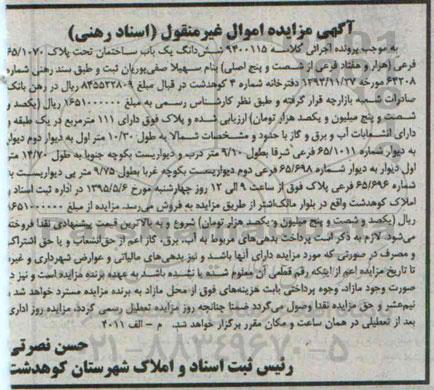 آگهی مزایده اموال غیرمنقول (اسناد رهنی)
به موجب پرونده اجرائی کلاسه ۹۴۰۰۱۱۵ شش‌دانگ یک باب ساختمان تحت پلاک ۶۵/۱۰۷۰
فرعی (هزار و هفتاد فرعی از شصت و پنج اصلی) بنام سهیلا صفی‌پوریان ثبت و طبق سند رهنی شماره
۶۳۲۰۸ مورخه ۱۳۹۲/۱۱/۲۷ دفترخانه شماره ۳ کوهدشت در قبال مبلغ ۸۴۵۵۲۲۸۰۹ ریال در رهن بانک
صادرات شعبه بازارچه قرار گرفته و طبق نظر کارشناس رسمی به مبلغ ۱۶۵۱۰۰۰۰۰۰ ریال (یکصد و
شصت و پنج میلیون و یکصد هزار تومان) ارزیابی شده و پلاک فوق دارای ۱۱۱ مترمربع در یک طبقه و
دارای انشعابات آب و برق و گاز با حدود و مشخصات شمالا به طول ۱۰/۳۰ متر اول به دیوار دوم دیوار
به دیوار شماره ۶۵/۱۰۱۱ فرعی شرقا بطول ۹/۱۰ متر درب و دیواریست بکوچه جنوبا به طول ۱۴/۷۰ متر
اول دیوار به دیوار شماره ۶۵/۶۹۸ فرعی دوم دیواریست بکوچه غربا بطول ۹/۷۵ متر پی دیواریست به
شماره ۶۵/۶۹۶ فرعی پلاک فوق از ساعت ۹ الی ۱۲ روز چهارشنبه مورخ ۱۳۹۵/۵/۶ در اداره ثبت اسناد و
املاک کوهدشت واقع در بلوار مالک‌اشتر از طریق مزایده به فروش می‌رسد. مزایده از مبلغ ۱۶۵۱۰۰۰۰۰۰
ریال (یکصد و شصت و پنج میلیون و یکصد هزار تومان) شروع و به بالاترین قیمت پیشنهادی نقدا فروخته
می‌شود. لازم به ذکر است پرداخت بدهی‌های مربوط به آب، برق، گاز اعم از حق‌انشعاب و یا حق اشتراک
و مصرف در صورتی که مورد مزایده دارای آنها باشد و نیز بدهی‌های مالیاتی و عوارض شهرداری و غیره
تا تاریخ مزایده اعم از اینکه رقم قطعی آن معلوم شده یا نشده باشد به عهده برنده مزایده است و نیز در
صورت وجود مازاد، وجوه پرداختی بابت هزینه‌های فوق از محل مازاد به برنده مزایده مسترد خواهد شد و
نیم‌عشر و حق مزایده نقدا وصول می‌گردد ضمنا چنانچه روز مزایده تعطیل رسمی گردد، مزایده روز اداری
بعد از تعطیلی در همان ساعت و مکان مقرر برگزار خواهد شد. م - الف ۴۰۱۱
حسن نصرتی
رئیس ثبت اسناد و املاک شهرستان کوهدشت
۰۲۱-۸۸۳۴۹۶۷۰-۵